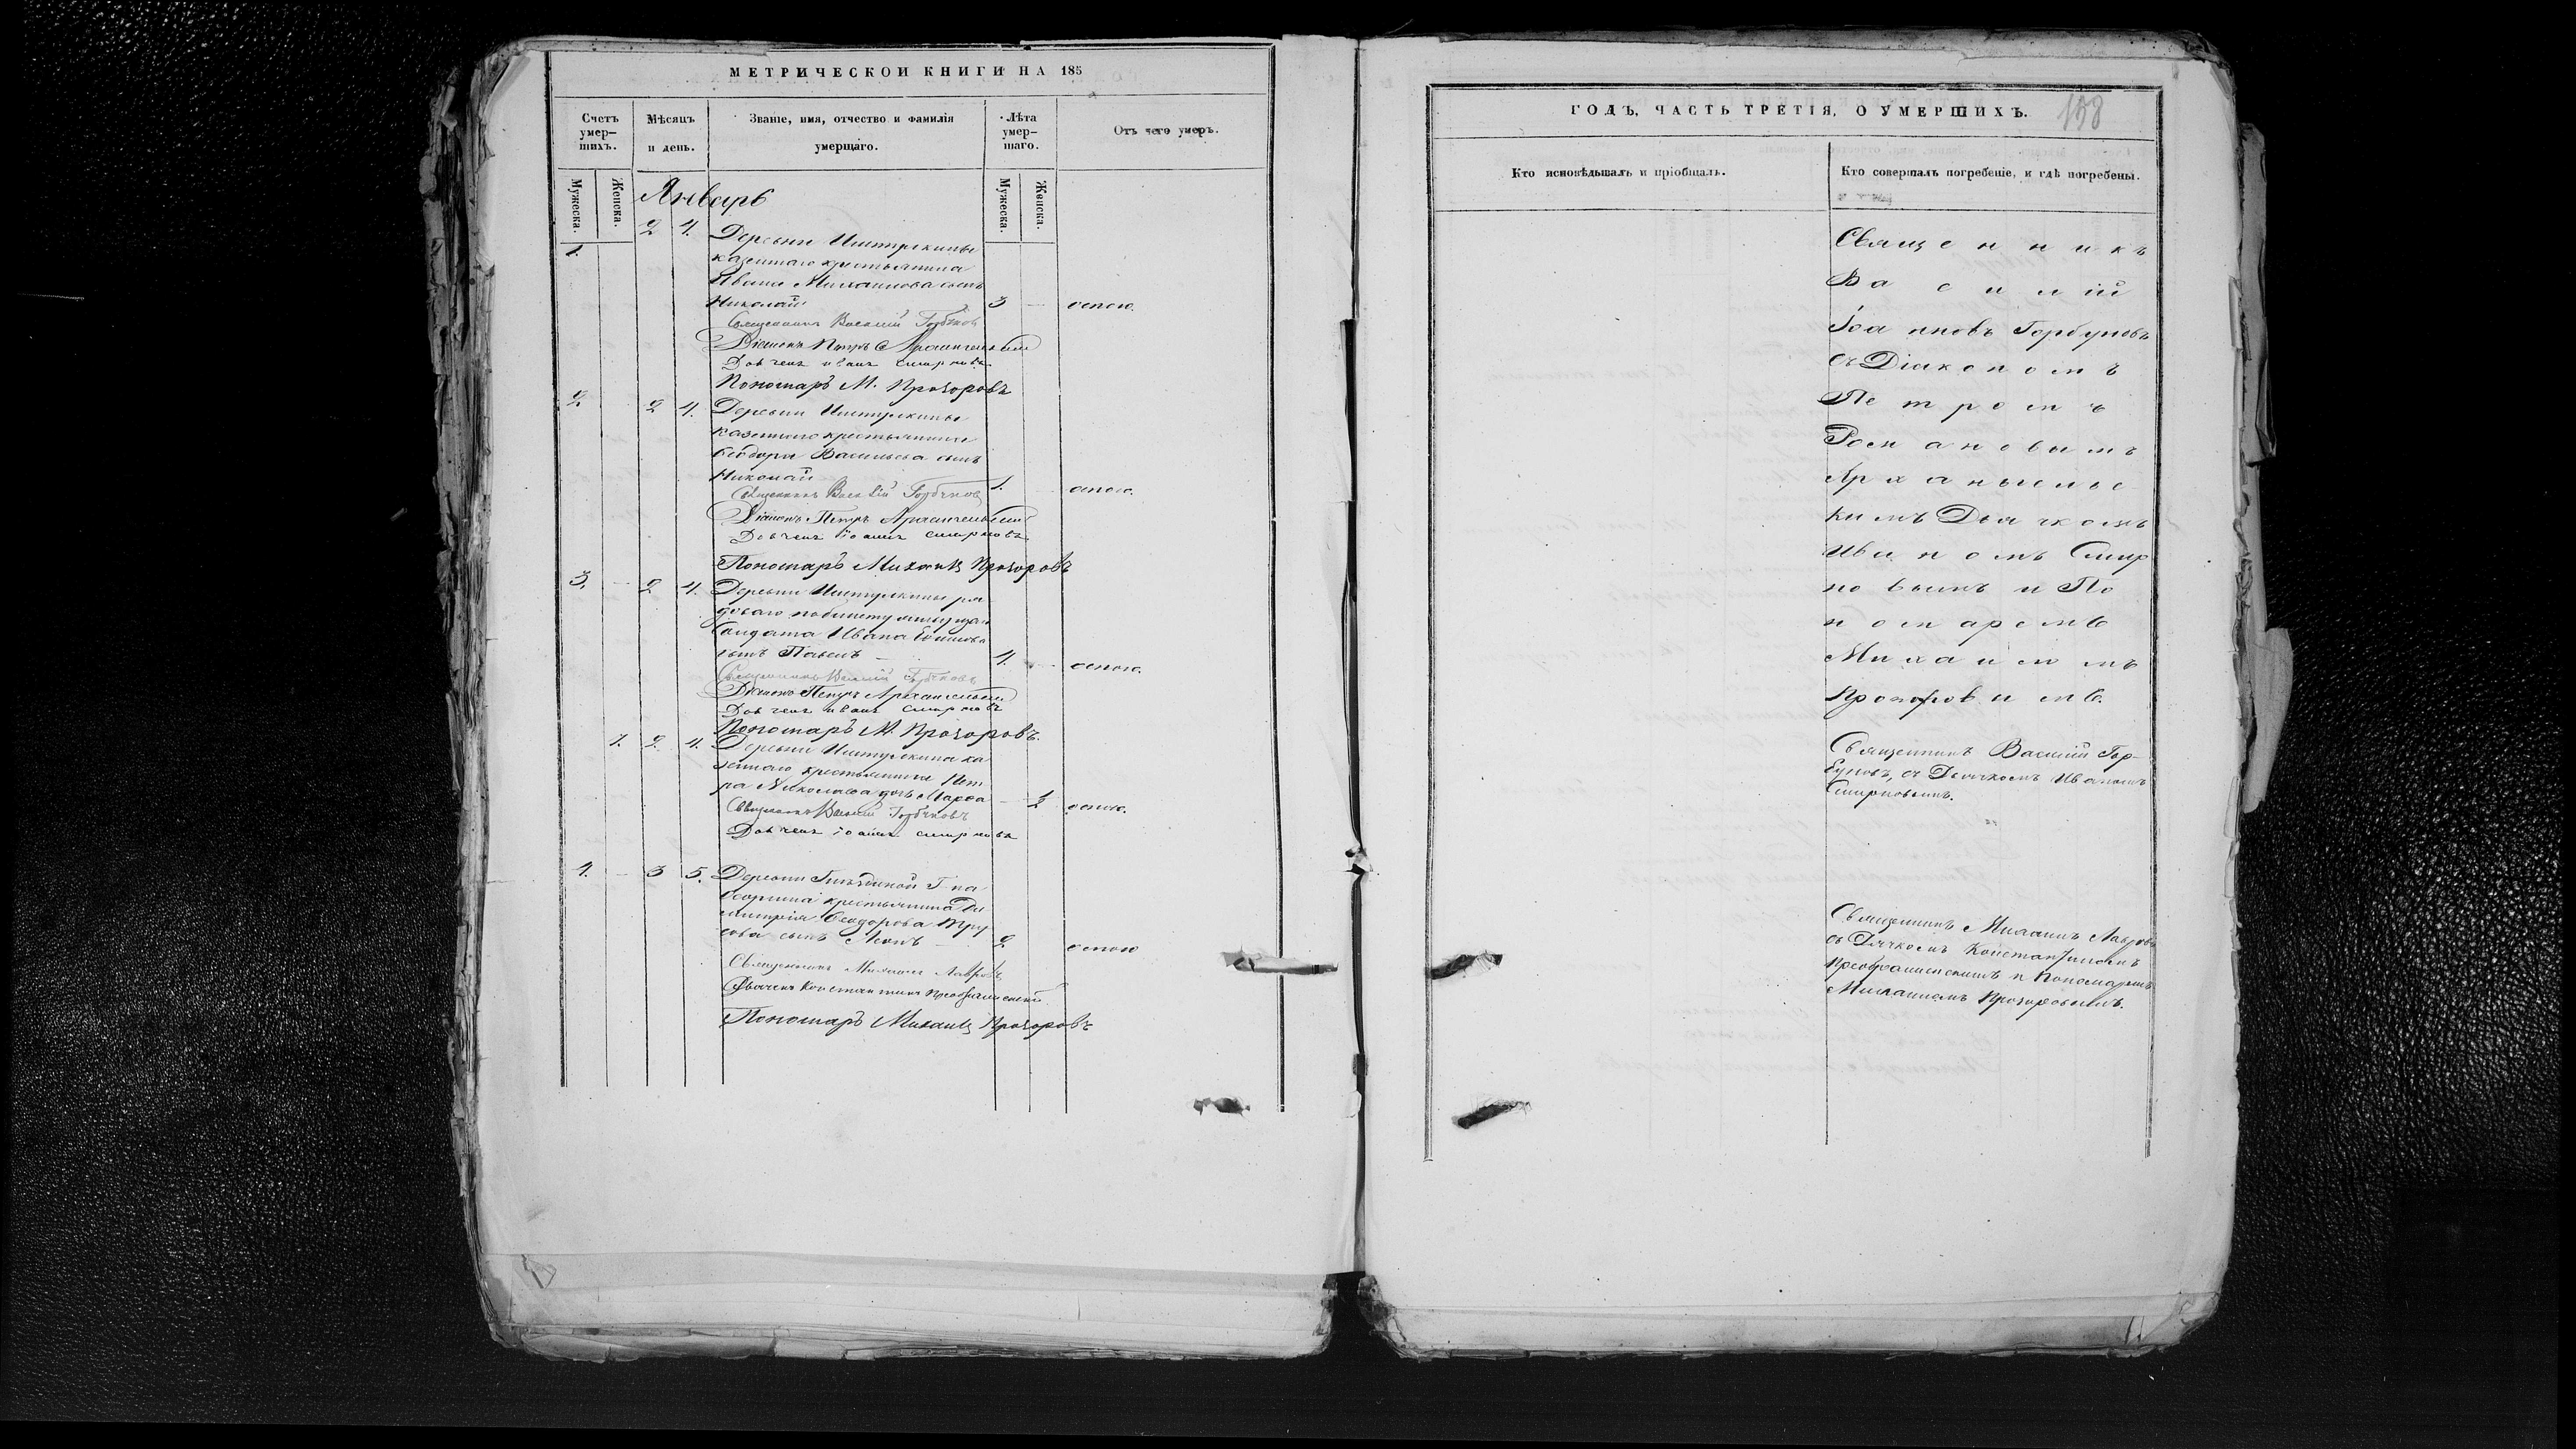 МЕТРИЧЕСКОИ КНИГИ НА 185
Счетъ умер-шихъ.
Мѣсяцъ и день.
Званіе, имя, отчество и фамилія умершаго.
Лѣта умер-шаго.
Отъ чего умеръ.
Мужеска.
Женска.
Мужеска.
Женска.
Январь
1. 2 4. Деревни
казеннаго крестьянина
Ивана Михаилова сынъ
Николай 3 оспою.
Священникъ Василій Горбуновъ
Діаконъ Петръ Архангельскій
Дьячекъ иванъ смирновъ
Пономарь М. Прохоровъ
2 2 4. Деревни
казеннаго крестьянина
Ѳеодора Васильева сынъ
Николай 1. оспою.
Священникъ Василій Горбуновъ
Діаконъ Петръ Архангельскій
Дьячекъ іоаннъ смирновъ
Пономарь Михаилъ Прохоровъ
3. 2 4. Деревни
солдата Ивана
сынъ Павелъ 4. оспою.
Священникъ Василій Горбуновъ
Діаконъ Петръ Архангельскій
Дьячекъ иванъ смирновъ
Пономарь М. Прохоровъ.
1. 2. 4. Деревни ка
зеннаго крестьянина Пет
ра Николаева дочь Марѳа оспою.
Священникъ Василій Горбуновъ
Дьячекъ іоаннъ смирновъ
4. 3 5. Деревни Г-на
крестьянина Ди
митрія Ѳеодорова
сынъ 2 оспою
Священникъ Михаилъ Лавровъ
Дьячекъ Константинъ Преображенскій
Пономарь Михаилъ Прохоровъ
ГОДЪ, ЧАСТЬ ТРЕТІЯ, О УМЕРШИХЪ. 158
Кто исповѣдывалъ и пріобщалъ.
Кто совершалъ погребеніе, и гдѣ погребены.
Священникъ
Василій
Іоанновъ Горбуновъ
съ Діакономъ
Петромъ
Романовымъ
Архангельс
кимъ Дьячкомъ
Иваномъ Смир
новымъ и По
номаремъ
Михаиломъ
Прохоровымъ.
Священникъ Василій Гор-
буновъ, съ Дьячкомъ Иваномъ
Смирновымъ.
Священникъ Михаилъ Лавровъ
съ Дьячкомъ Константиномъ
Преображенскимъ и Пономаремъ
Михаиломъ Прохоровымъ.